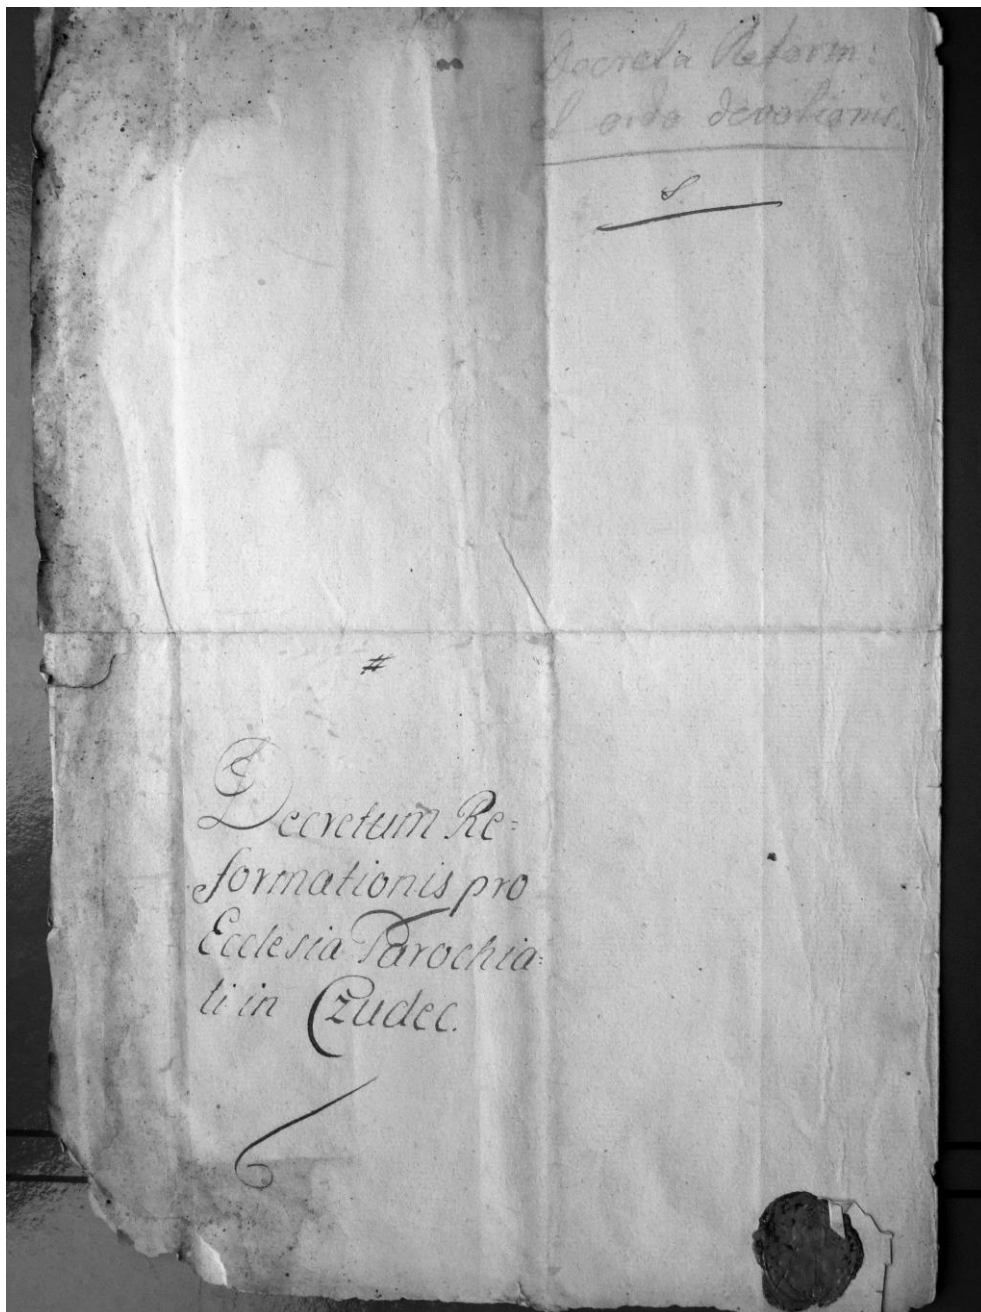 Decreta Reform:
et ordo devotionis.
S.
#
Decretum Re=
formationis pro
Ecclesia Parochia=
li in Czudec.